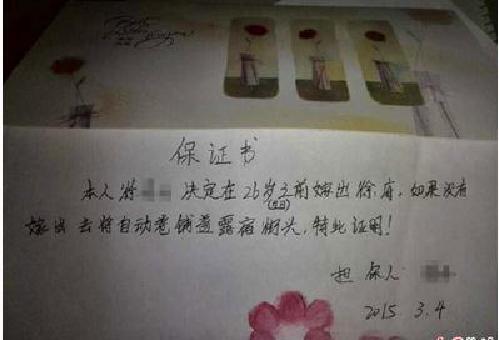 保证书
本人徐 决定在26岁之前嫁出徐府,如果没有
嫁出去将自动卷铺盖露宿街头,特此证明!
担保人
2015 3.4